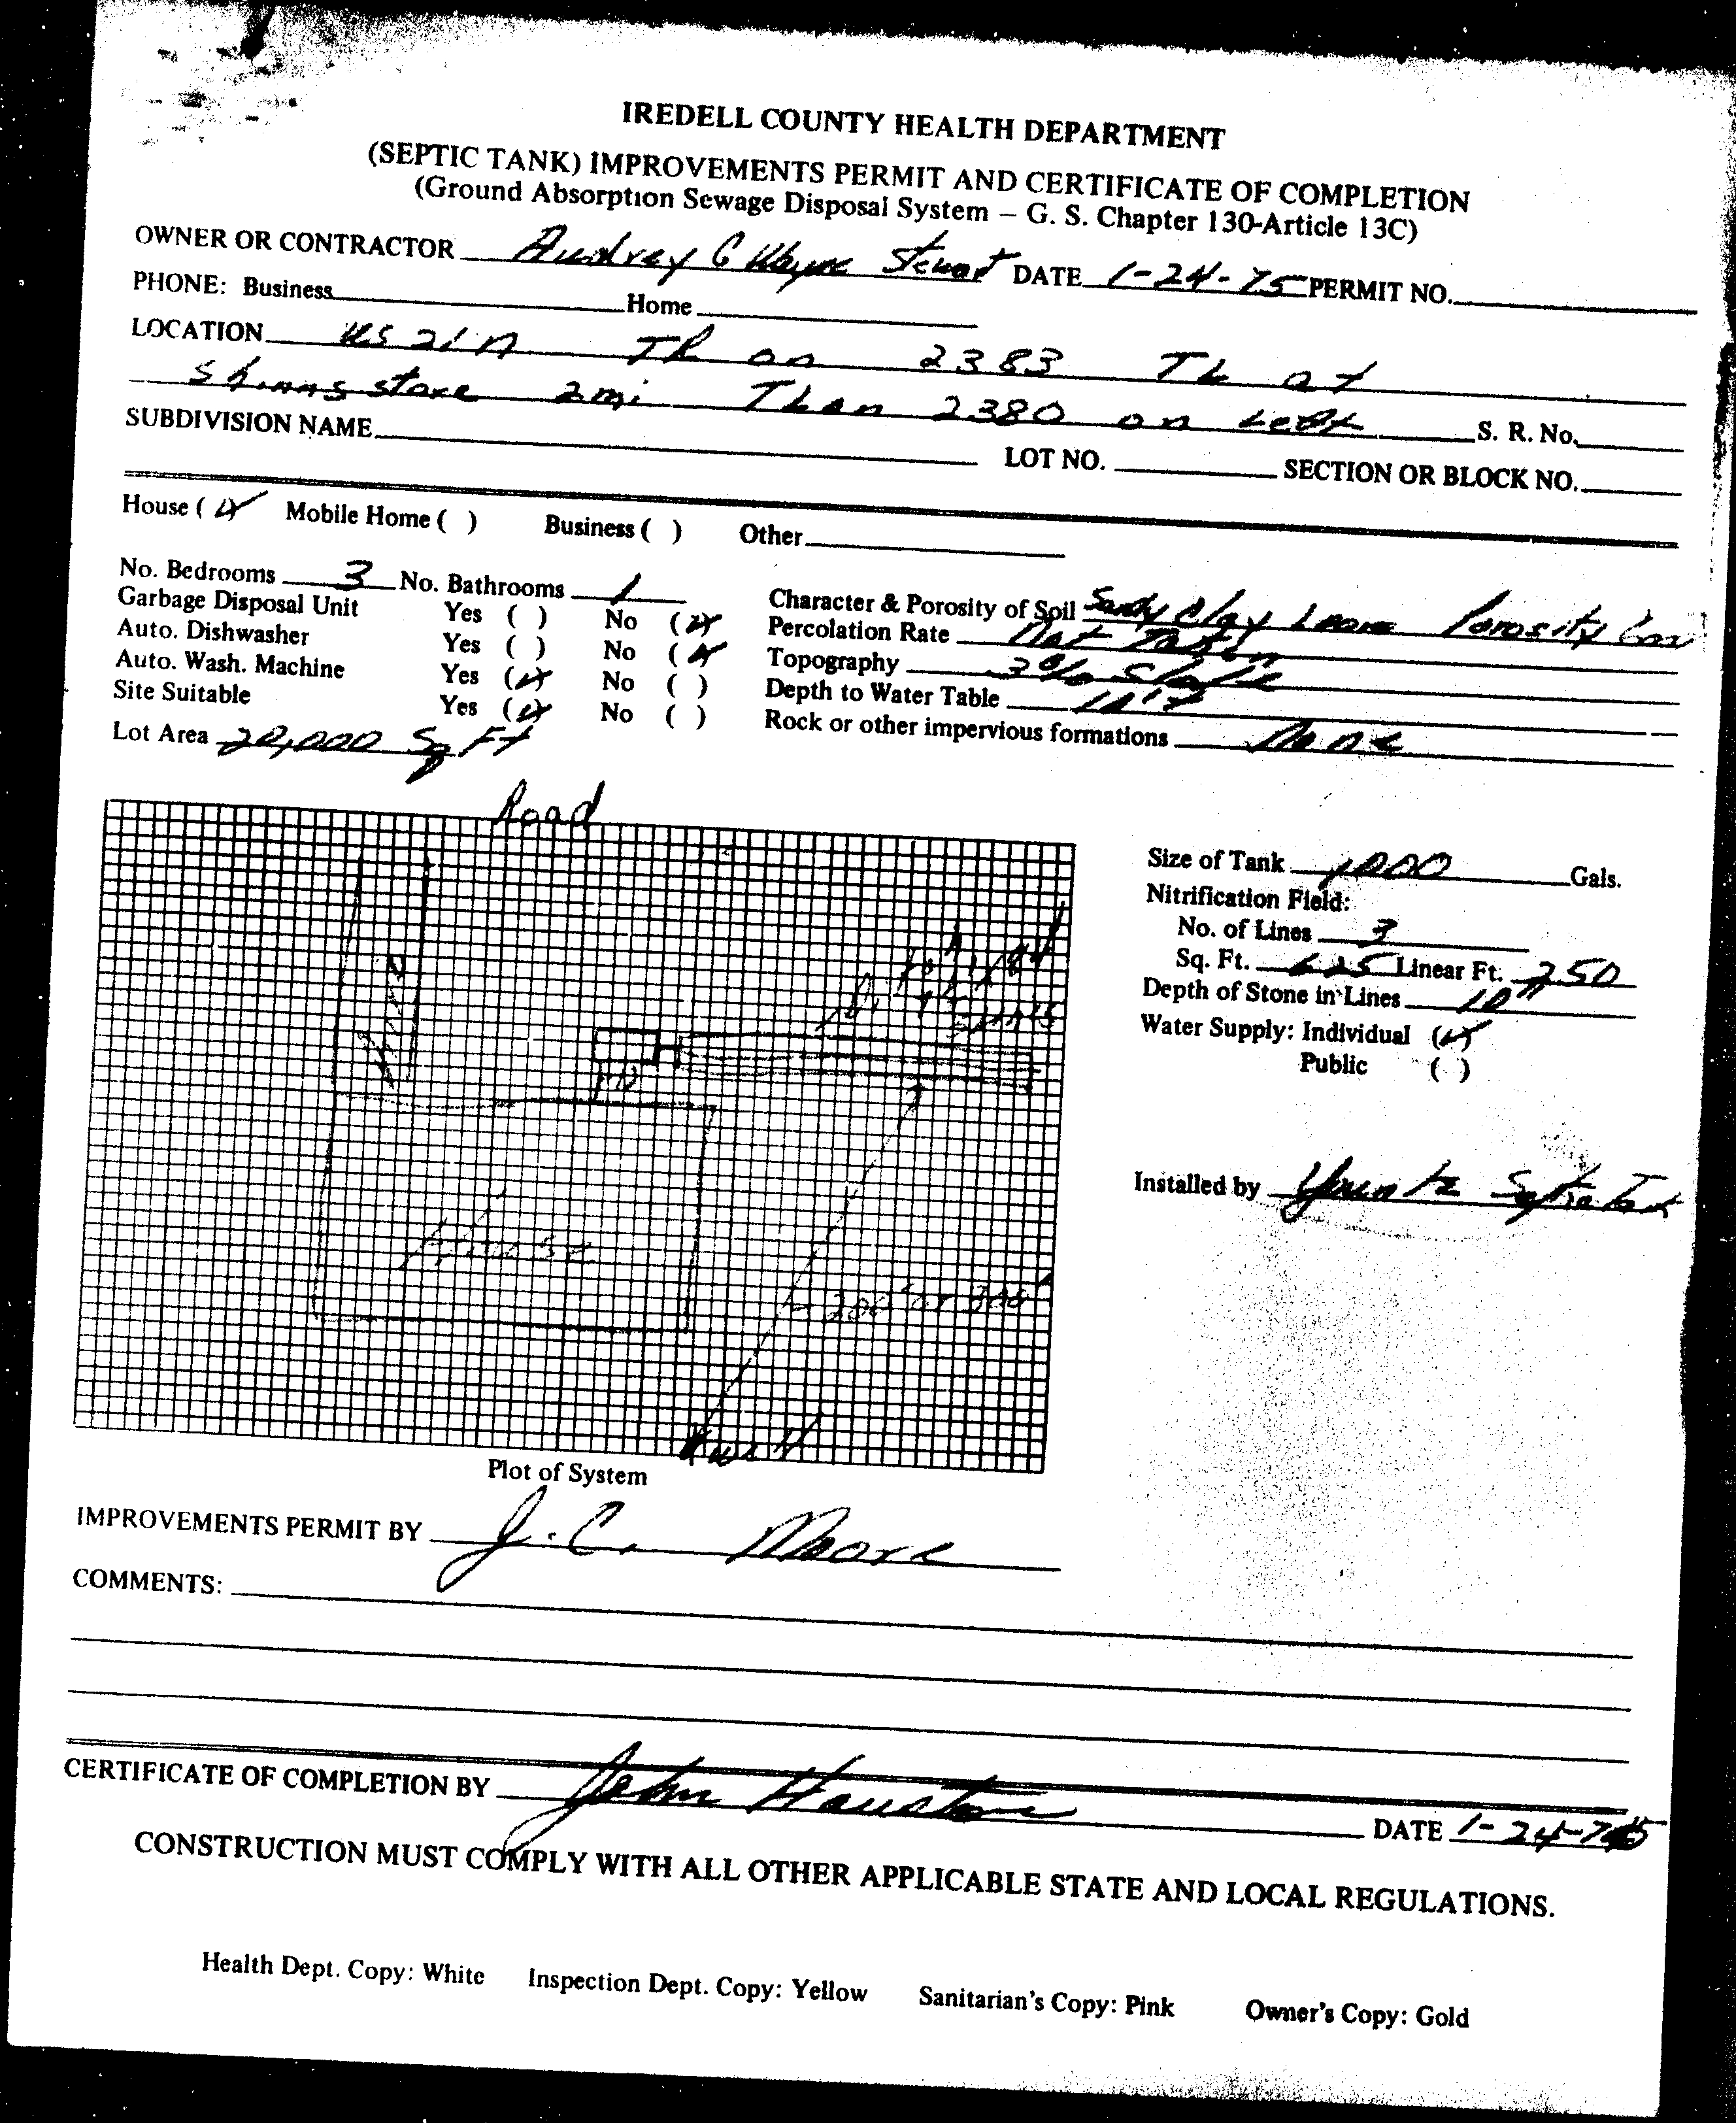 IREDELL COUNTY HEALTH DEPARTMENT
(SEPTIC TANK) IMPROVEMENTS PERMIT AND CERTIFICATE OF COMPLETION
(Ground Absorption Sewage Disposal System – G. S. Chapter 130-Article 13C)
OWNER OR CONTRACTOR Audrey C Wayne Stewart DATE 1-24-75 PERMIT NO.
PHONE: Business Home
LOCATION US 21 N TR on 2383 TL at
Shinns store 2 mi TL on 2380 on Left S. R. No.
SUBDIVISION NAME LOT NO. SECTION OR BLOCK NO.
House (✓) Mobile Home ( ) Business ( ) Other
No. Bedrooms 3 No. Bathrooms 1 Character & Porosity of Soil Sandy Clay Loam Porosity
Garbage Disposal Unit Yes ( ) No (✓) Percolation Rate Not Taken
Auto. Dishwasher Yes ( ) No (✓) Topography 3% Slope
Auto. Wash. Machine Yes (✓) No ( ) Depth to Water Table
Site Suitable Yes (✓) No ( ) Rock or other impervious formations None
Lot Area 20,000 Sq Ft
Road
Size of Tank 1000 Gals.
Nitrification Field:
No. of Lines 3
Sq. Ft. 625 Linear Ft. 250
Depth of Stone in Lines 10"
Water Supply: Individual (✓)
Public ( )
Drive
Installed by Septic Tank
House
200' or 300'
Well
Plot of System
IMPROVEMENTS PERMIT BY J. C. Moore
COMMENTS:
CERTIFICATE OF COMPLETION BY John Houston DATE 1-24-75
CONSTRUCTION MUST COMPLY WITH ALL OTHER APPLICABLE STATE AND LOCAL REGULATIONS.
Health Dept. Copy: White Inspection Dept. Copy: Yellow Sanitarian's Copy: Pink Owner's Copy: Gold